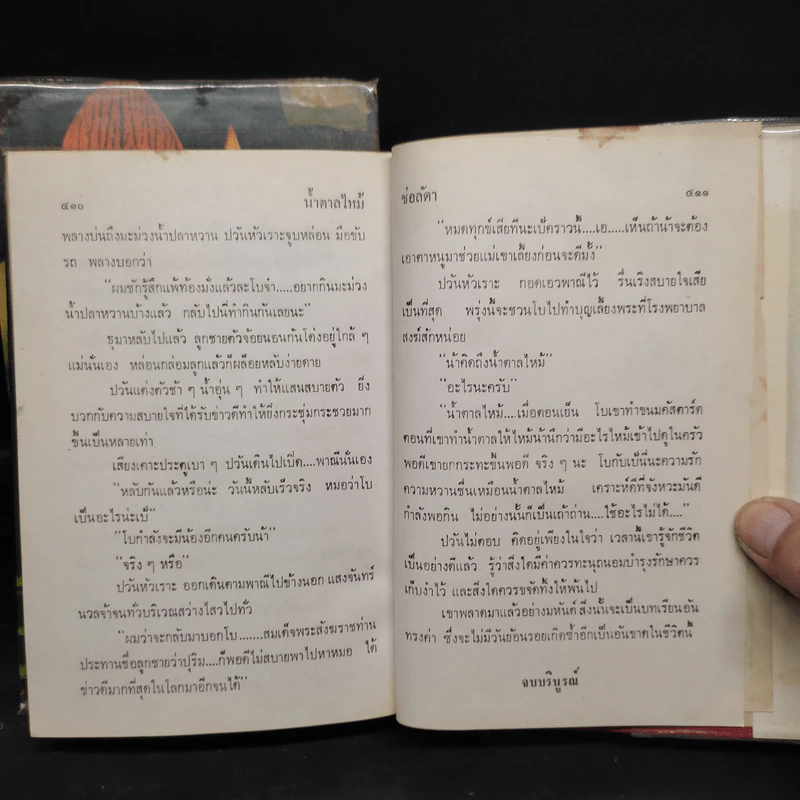 ๕๑๐ น้ำตาลไหม้
พลางบ่นถึงมะม่วงน้ำปลาหวาน ปวันหัวเราะจูบหล่อน มือขับ
รถ พลางบอกว่า
"ผมชักรู้สึกแพ้ท้องมั่งแล้วละโบจ๋า.....อยากกินมะม่วง
น้ำปลาหวานบ้างแล้ว กลับไปนี่ทำกินกันเลยนะ"
ธุมาหลับไปแล้ว ลูกชายตัวจ้อยนอนก้นโด่งอยู่ใกล้ ๆ
แม่นั่นเอง หล่อนกล่อมลูกแล้วก็ผล็อยหลับง่ายดาย
ปวันแต่งตัวช้า ๆ น้ำอุ่น ๆ ทำให้แสนสบายตัว ยิ่ง
บวกกับความสบายใจที่ได้รับข่าวดีทำให้ยิ่งกระชุ่มกระชวยมาก
ขึ้นเป็นหลายเท่า
เสียงเคาะประตูเบา ๆ ปวันเดินไปเปิด....พาณีนั่นเอง
"หลับกันแล้วหรือน่ะ วันนี้หลับเร็วจริง หมอว่าโบ
เป็นอะไรน่ะเบ๊"
"โบกำลังจะมีน้องอีกคนครับน้า"
"จริง ๆ หรือ"
ปวันหัวเราะ ออกเดินตามพาณีไปข้างนอก แสงจันทร์
นวลจ้าจนทั่วบริเวณสว่างไสวไปทั่ว
"ผมว่าจะกลับมาบอกโบ.......สมเด็จพระสังฆราชท่าน
ประทานชื่อลูกชายว่าปุริม....ก็พอดีไม่สบายพาไปหาหมอ ได้
ข่าวดีมากที่สุดในโลกมาอีกจนได้"
ช่อลัดา ๕๑๑
"หมดทุกข์เสียทีนะเบ๊คราวนี้....เอ.....เห็นถ้าน้าจะต้อง
เอาตาหนูมาช่วยแม่เขาเลี้ยงก่อนจะดีมั้ง"
ปวันหัวเราะ กอดเอวพาณีไว้ รื่นเริงสบายใจเสีย
เป็นที่สุด พรุ่งนี้จะชวนโบไปทำบุญเลี้ยงพระที่โรงพยาบาล
สงฆ์สักหน่อย
"น้าคิดถึงน้ำตาลไหม้"
"อะไรนะครับ"
"น้ำตาลไหม้....เมื่อตอนเย็น โบเขาทำขนมคัสตาร์ด
ตอนที่เขาทำน้ำตาลให้ไหม้น้านึกว่ามีอะไรไหม้เข้าไปดูในครัว
พอดีเขายกกระทะขึ้นพอดี จริง ๆ นะ โบกับเบ๊นี่นะความรัก
ความหวานชื่นเหมือนน้ำตาลไหม้ เคราะห์ดีที่จังหวะมันดี
กำลังพอกิน ไม่อย่างนั้นก็เป็นเถ้าถ่าน....ใช้อะไรไม่ได้...."
ปวันไม่ตอบ คิดอยู่เพียงในใจว่า เวลานี้เขารู้จักชีวิต
เป็นอย่างดีแล้ว รู้ว่าสิ่งใดมีค่าควรทะนุถนอมบำรุงรักษาควร
เก็บงำไว้ และสิ่งใดควรขจัดทิ้งให้พ้นไป
เขาพลาดมาแล้วอย่างมหันต์ สิ่งนั้นจะเป็นบทเรียนอัน
ทรงค่า ซึ่งจะไม่มีวันย้อนรอยเกิดซ้ำอีกเป็นอันขาดในชีวิตนี้
จบบริบูรณ์